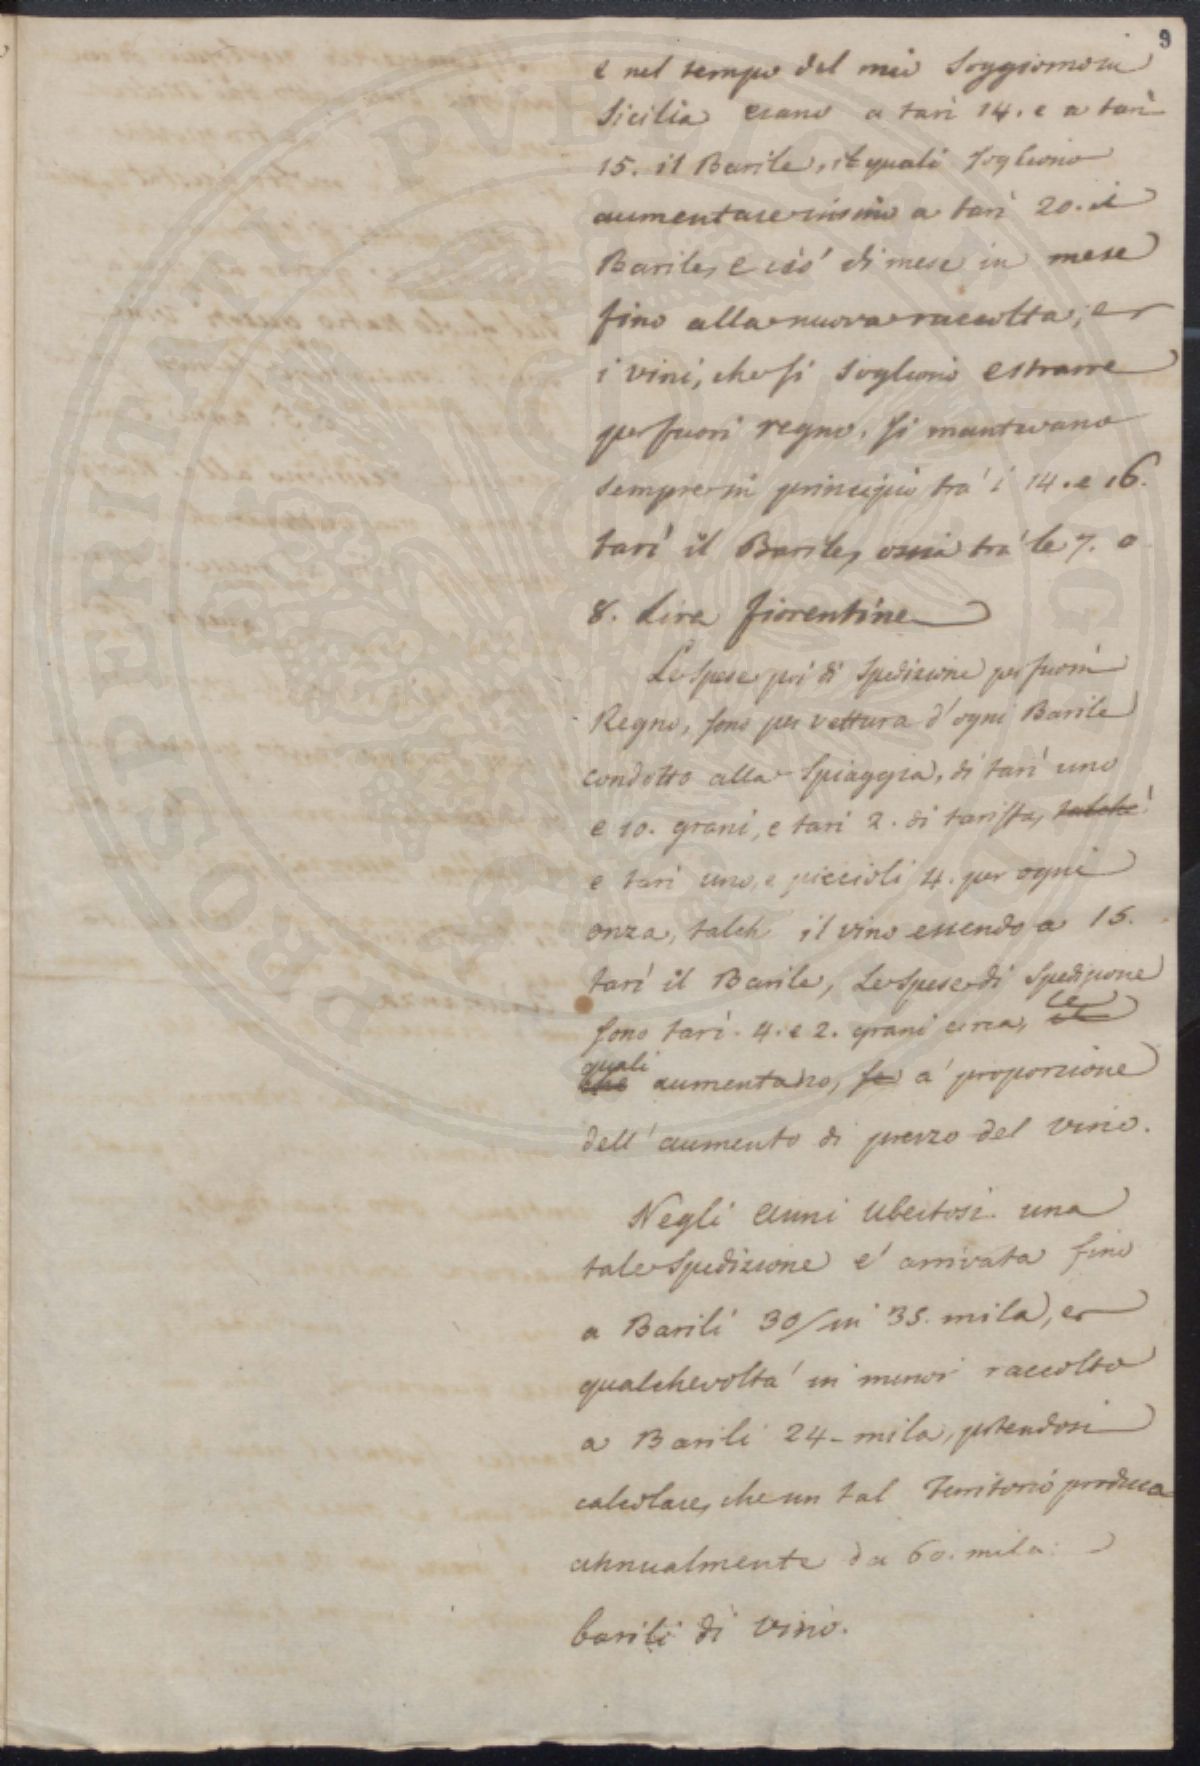 9
e nel tempo del mio Soggiorno in
Sicilia erano a tarì 14. e a tarì
15. il Barile, i quali sogliono
aumentare insino a tarì 20. il
Barile, e ciò di mese in mese
fino alla nuova raccolta; e
i vini, che si sogliono estrarre
per fuori regno, si mantevano
sempre in principio trà i 14. e 16.
tarì il Barile, ossia trà le 7. o
8. Lire fiorentine
Le spese poi di spedizione per fuori
Regno, sono per vettura d'ogni Barile
condotto alla Spiaggia, di tarì uno
e 10. grani, e tarì 2. di tariffa, talchè
e tarì uno, e piccioli 4. per ogni
onza, talch il vino essendo a 15.
tarì il Barile, Le spese di Spedizione
sono tarì. 4. e 2. grani circa, le
quali
che aumentano, se a proporzione
dell'aumento di prezzo del vino.
Negli anni Ubertosi una
tale Spedizione è arrivata fino
a Barili 30/ in 35. mila, e
qualchevolta in minor raccolto
a Barili 24-mila, potendosi
calcolare, che un tal Territorio produca
annualmente da 60. mila
barili di vino.
PROSPERITATI PVBLICAE